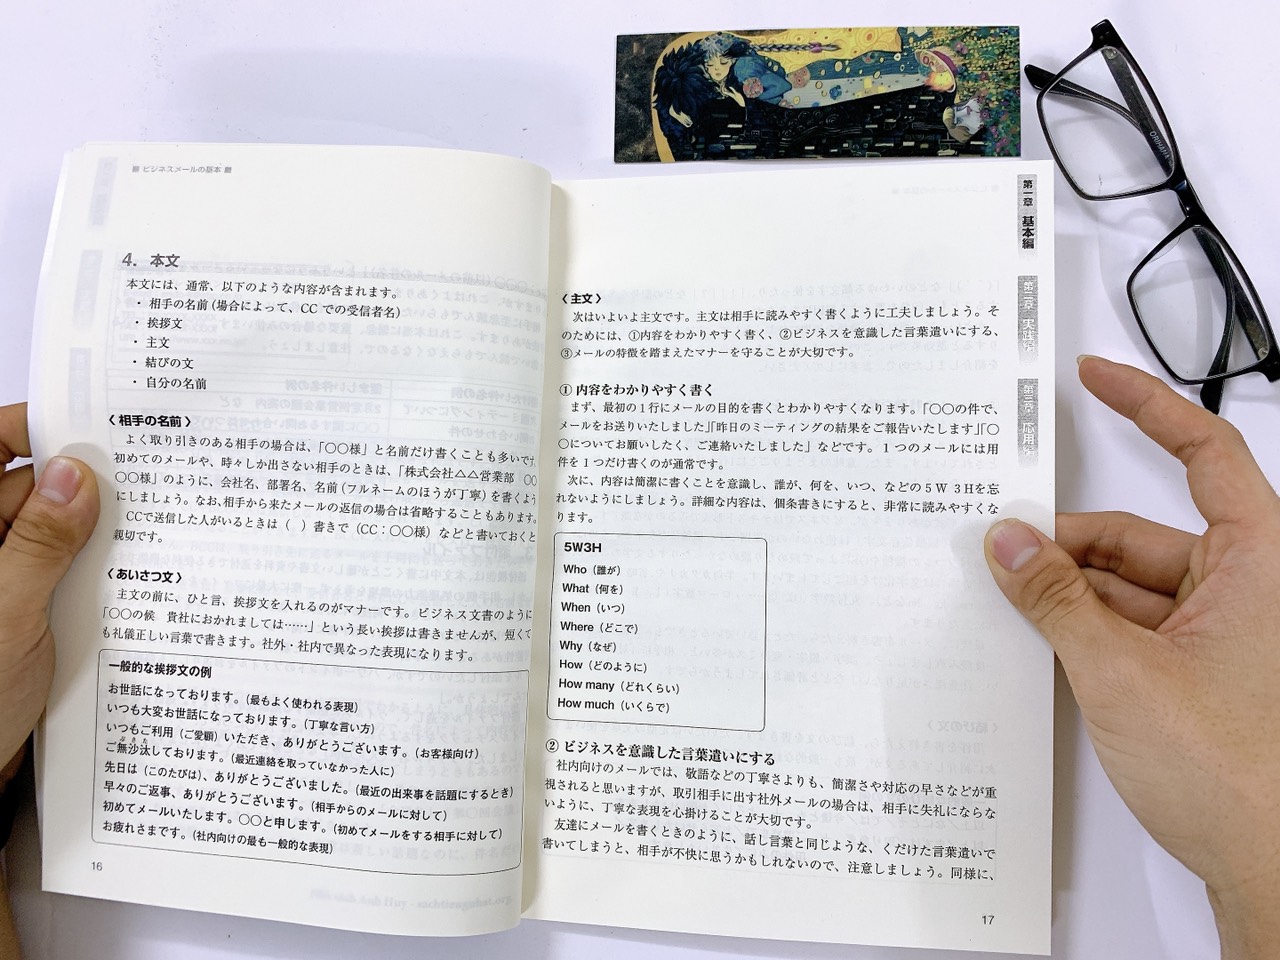 ■ ビジネスメールの基本 ■
4. 本文
本文には、通常、以下のような内容が含まれます。
・ 相手の名前 (場合によって、CC での受信者名)
・ 挨拶文
・ 主文
・ 結びの文
・ 自分の名前
〈 相手の名前 〉
よく取り引きのある相手の場合は、「〇〇様」と名前だけ書くことも多いです。
初めてのメールや、時々しか出さない相手のときは、「株式会社△△営業部 〇〇
〇〇様」のように、会社名、部署名、名前 (フルネームのほうが丁寧) を書くよう
にしましょう。なお、相手から来たメールの返信の場合は省略することもあります。
CCで送信した人がいるときは ( ) 書きで (CC：〇〇様) などと書いておくと
親切です。
〈 あいさつ文 〉
主文の前に、ひと言、挨拶文を入れるのがマナーです。ビジネス文書のように
「〇〇の候 貴社におかれましては……」という長い挨拶は書きませんが、短くて
も礼儀正しい言葉で書きます。社外・社内で異なった表現になります。
一般的な挨拶文の例
お世話になっております。（最もよく使われる表現）
いつも大変お世話になっております。（丁寧な言い方）
いつもご利用（ご愛顧）いただき、ありがとうございます。（お客様向け）
ご無沙汰しております。（最近連絡を取っていなかった人に）
先日は（このたびは）、ありがとうございました。（最近の出来事を話題にするとき）
早々のご返事、ありがとうございます。（相手からのメールに対して）
初めてメールいたします。〇〇と申します。（初めてメールをする相手に対して）
お疲れさまです。（社内向けの最も一般的な表現）
16
〈 主文 〉
次はいよいよ主文です。主文は相手に読みやすく書くように工夫しましょう。そ
のためには、①内容をわかりやすく書く、②ビジネスを意識した言葉遣いにする、
③メールの特徴を踏まえたマナーを守ることが大切です。
① 内容をわかりやすく書く
まず、最初の１行にメールの目的を書くとわかりやすくなります。「〇〇の件で、
メールをお送りいたしました」「昨日のミーティングの結果をご報告いたします」「〇
〇についてお願いしたく、ご連絡いたしました」などです。１つのメールには用
件を１つだけ書くのが通常です。
次に、内容は簡潔に書くことを意識し、誰が、何を、いつ、などの５Ｗ ３Ｈを忘
れないようにしましょう。詳細な内容は、個条書きにすると、非常に読みやすくな
ります。
5W3H
Who（誰が）
What（何を）
When（いつ）
Where（どこで）
Why（なぜ）
How（どのように）
How many（どれくらい）
How much（いくらで）
② ビジネスを意識した言葉遣いにする
社内向けのメールでは、敬語などの丁寧さよりも、簡潔さや対応の早さなどが重
視されると思いますが、取引相手に出す社外メールの場合は、相手に失礼にならな
いように、丁寧な表現を心掛けることが大切です。
友達にメールを書くときのように、話し言葉と同じような、くだけた言葉遣いで
書いてしまうと、相手が不快に思うかもしれないので、注意しましょう。同様に、
17
第一章 基本編
第二章 実践編
第三章 応用編